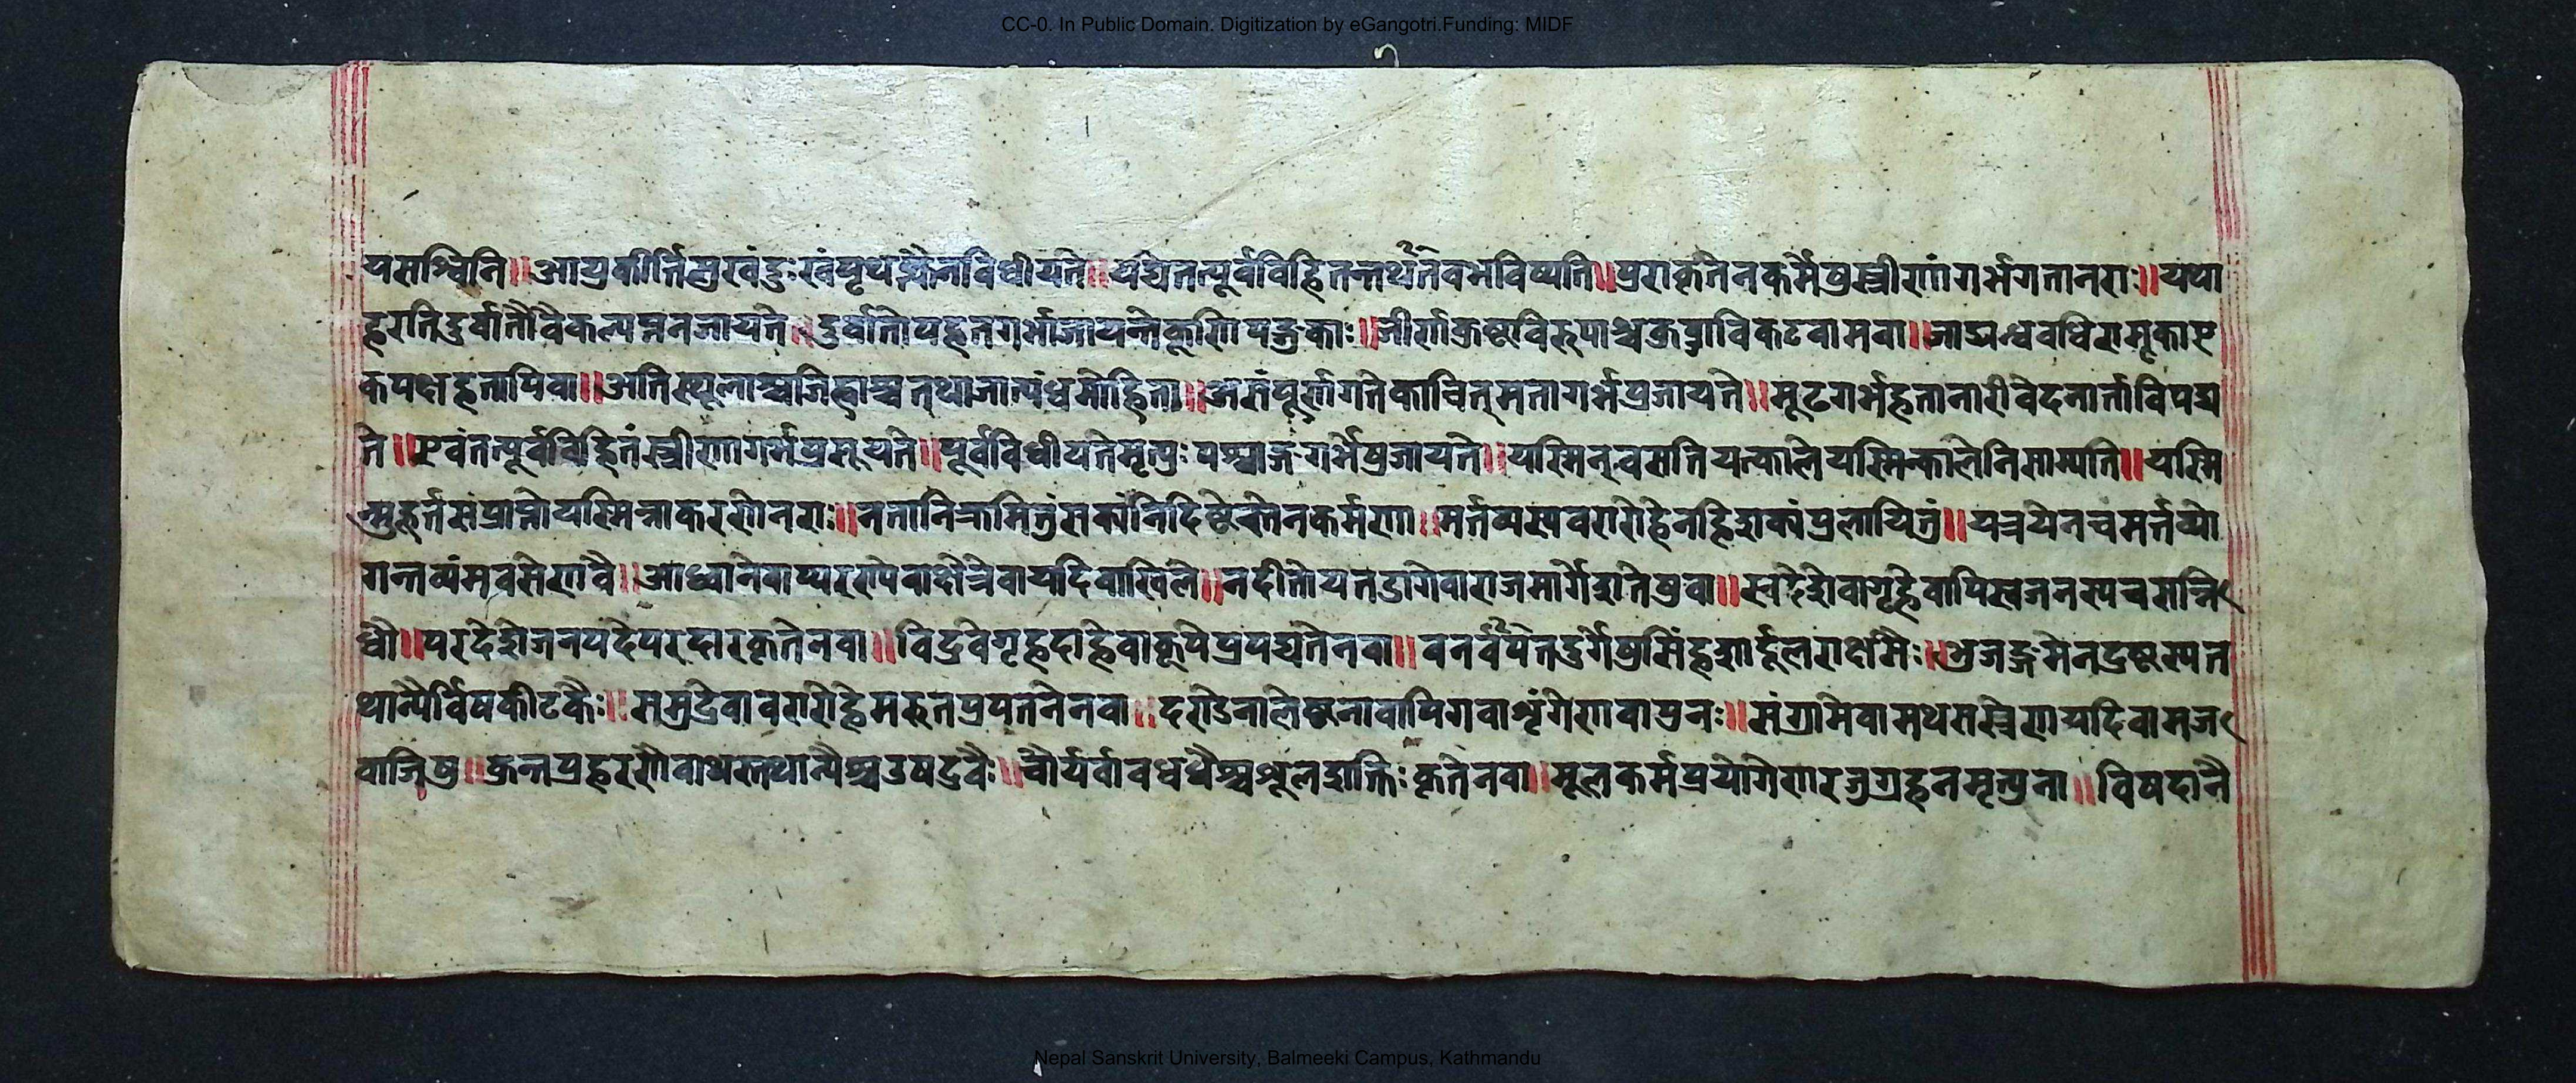 CC-0. In Public Domain. Digitization by eGangotri.Funding: MIDF
यसश्विनि॥आपुकीर्त्तिसुखंदुःखंपृथक्त्वेनविधीयते॥यद्येतत्पूर्वविहितन्तथैतेवभविष्यति॥पुराकृतेनकर्मेषुस्त्रीणांगर्भगतानराः॥यथा
हरतिदुर्वातौवैकल्पम्नजायते॥दुर्वातोपहतगर्भाजायन्तेकूणिपङ्गुकाः॥जीर्णाकुष्टाविरूपाश्चकुब्जाविकटवामवा॥जाड्यन्धवधिरामूकाए
कपक्षहतापिवा॥अतिस्थूलाश्चजिह्वाश्चत्थाजात्यंधमोहिता॥असंपूर्णागतेकाचित्मृतागर्भप्रजायते॥मूढगर्भहतानारीवेदनार्ताविपद्य
ते॥एवंतत्पूर्वविहितंस्त्रीणागर्भप्रसूयते॥पूर्वविधीयतेमृत्युःपश्चाद्गर्भेप्रजायते॥यस्मिन्वसतियत्कालेयस्मिन्कालेनिसाम्यति॥यस्मि
न्मुहूर्त्तसंप्राप्तोयस्मिन्नाकरणेनराः॥नतानिक्रामितुंसक्यंनिर्दिष्टंस्तेनकर्मणा॥मर्त्तव्यस्यवरारोहेनहिशक्यंप्रलायितुं॥यत्रयेनचमर्त्तव्यो
गन्तव्यंमवसेणवै॥आध्वानेवाप्यरण्येवाक्षेत्रेवायदिवाखिले॥नदीतोयतडागेवाराजमार्गेशतेषुवा॥स्वदेशेवागृहेवापिस्वजनस्यचसन्नि
धौ॥परदेशेजनपदेपरदारकृतेनवा॥विद्रवेगृहदाहेवाकूपेप्रपद्यतेनवा॥वनर्वपेतदुर्गेषुसिंहशार्दूलराक्षसैः॥भुजङ्गमेनद्रष्टास्यत
थान्यैर्विषकीटकैः॥समुद्रेवावरारोहेमरुतप्रपतनेनवा॥दण्डेनालेष्टनावापिगवाशृंगेणवापुनः॥संग्रामेवामथसस्त्रेणयदिवामज
वाजिषु॥कुन्तप्रहरणैवाथस्तथान्यैश्चउपद्रवैः॥चौर्यर्वावधधैश्चशूलशक्तिःकृतेनवा॥मूलकर्मप्रयोगेणरजुग्रहनमृत्युना॥विषदानै
Nepal Sanskrit University, Balmeeki Campus, Kathmandu